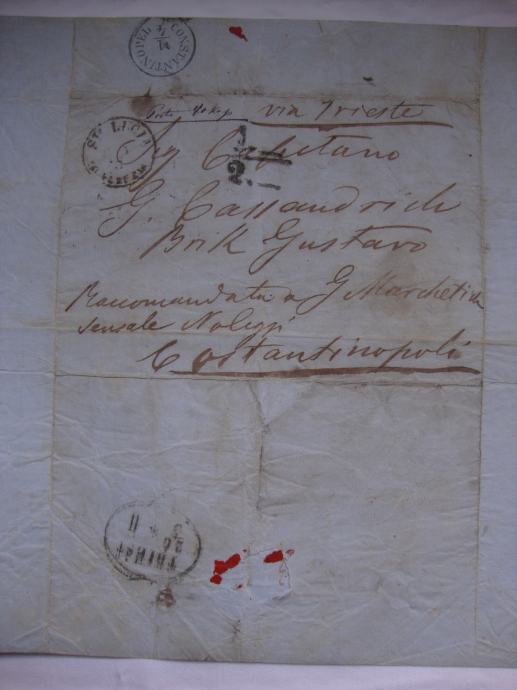 CONSTANTINOPEL
via Trieste
ST. LUCIA
1
2
Sig Capitano
G. Cassandrich
Brik Gustavo
Raccomandata a G Marchetich
Sensale Noleggi
Costantinopoli
TRIEST